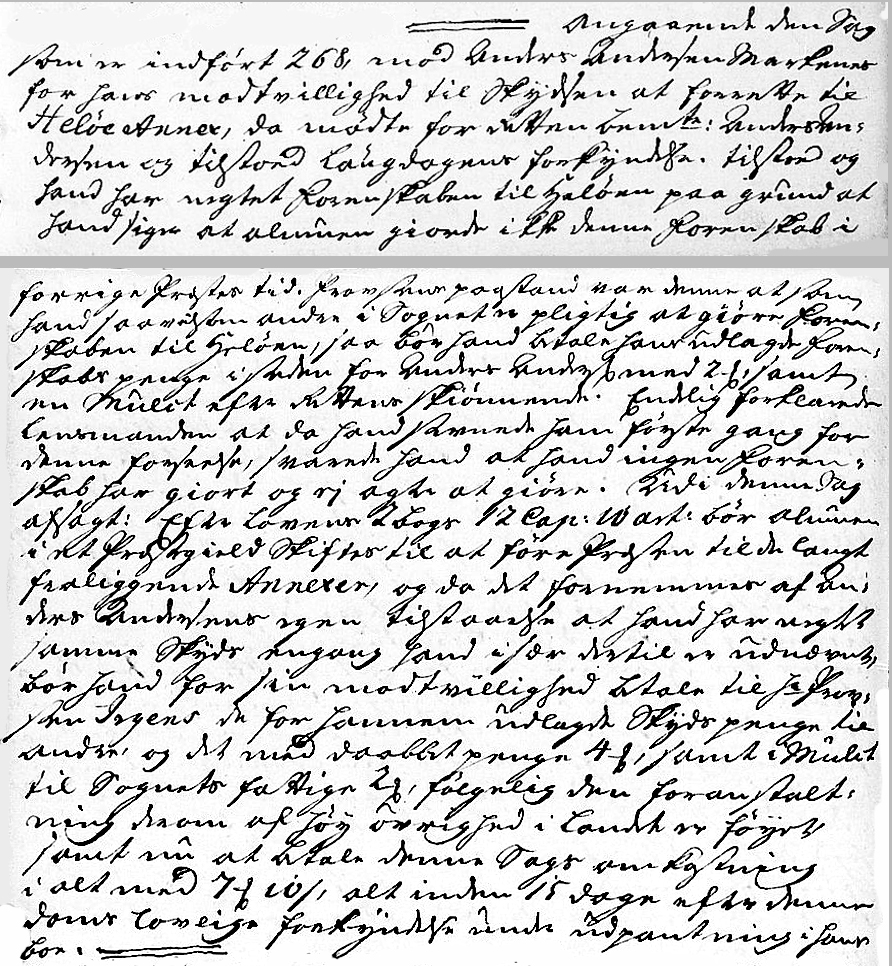 Angaaende den Sag
som er indført 268, mod Anders Andersen Markenes
for hans modtvillighed til Skydsen at forrette til
Heløe Annex, da mødte for Retten bemte: Anders An-
dersen og tilstoed Laugdagens forkyndelse. tilstoed og
hand har negtet Forenskaben til Heløen paa grund at
hand siger at almuen giorde ikke denne Forenskab i
forrige Præstes tid. Provstens paastand var denne at som
hand saavelsom andre i Sognet er pligtig at giøre Foren-
skaben til Heløen, saa bør hand betale hans udlagde Foren-
skabs penge i steden for Anders Anders: med 2 , samt
en Mulct efter Rettens skiønnende. Endelig forklarede
Lensmanden at da hand stevnede ham første gang for
denne forseelse, svarede hand at hand ingen Foren-
skab har giort og ej agter at giøre. Udi denne Sag
afsagt: Efter Lovens 2 bogs 12 Cap: 10 art: bør almuen
i et Præstegield Skiftes til at føre Præsten til de langt
fraliggende Annexer, og da det fornemmes af An-
ders Andersens egen tilstaaelse at hand har negtet
samme Skyds engang hand især dertil er udnævnt,
bør hand for sin modtvillighed betale til Hr Prov-
sten Irgens de for hannem udlagde Skyds penge til
andre, og det med dobbelt penge 4 , samt i Mulct
til Sognets fattige 2 , følgelig den foranstalt-
ning derom af høy øvrighed i Landet er føyet,
samt nu at betale denne Sags omkostning
i alt med 7 10 s, alt inden 15 dage efter denne
doms lovlige forkyndelse under udpantning i hans
boe.